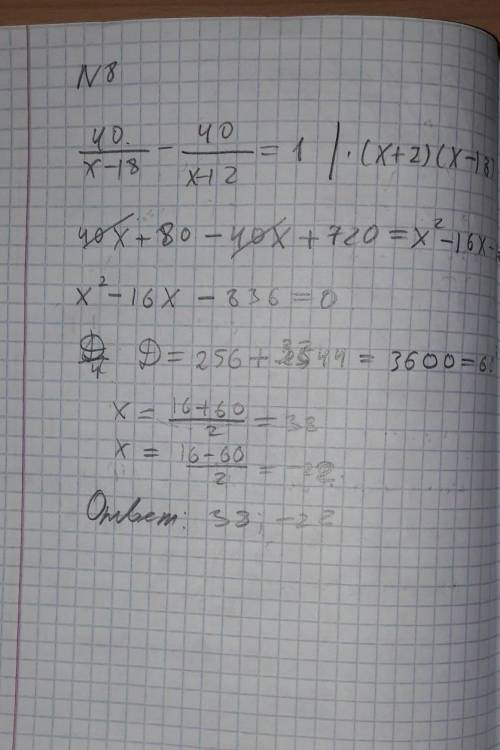 N 8
40/(x-18) - 40/(x+2) = 1 | · (x+2)(x-18)
40x + 80 - 40x + 720 = x² - 16x -
x² - 16x - 836 = 0
D = 256 + 3344 = 3600 = 6
x = (16+60)/2 = 38
x = (16-60)/2 = -22
Ответ: 38; -22